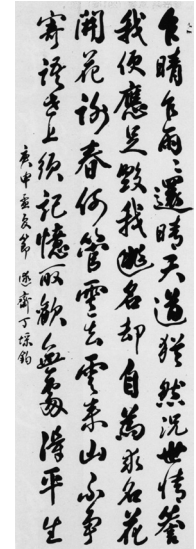 乍晴乍雨〻還晴天道猶然況世情譽
我便應是毀我逃名却自為求名花
開花謝春何管雲去雲來山不爭
寄語世上須記憶取歡無處得平生
庚申孟夏節 齋丁